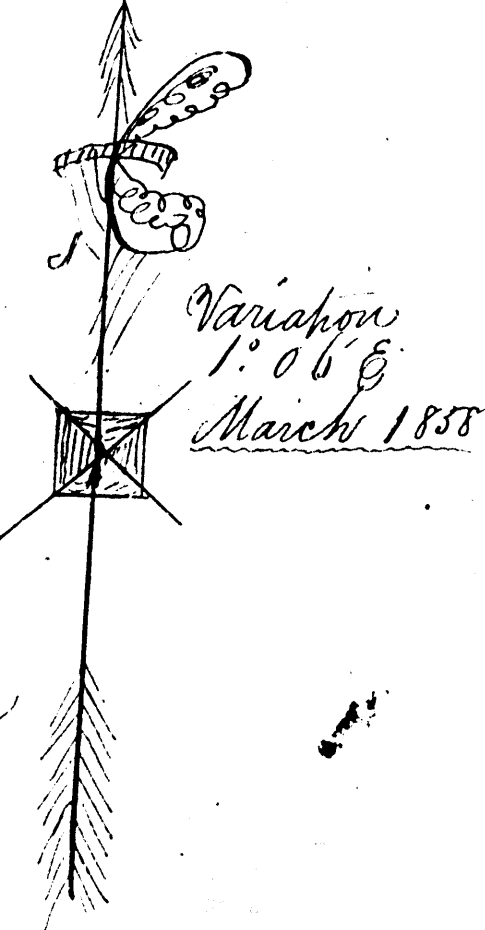 Variation
1° 06' E
March 1858